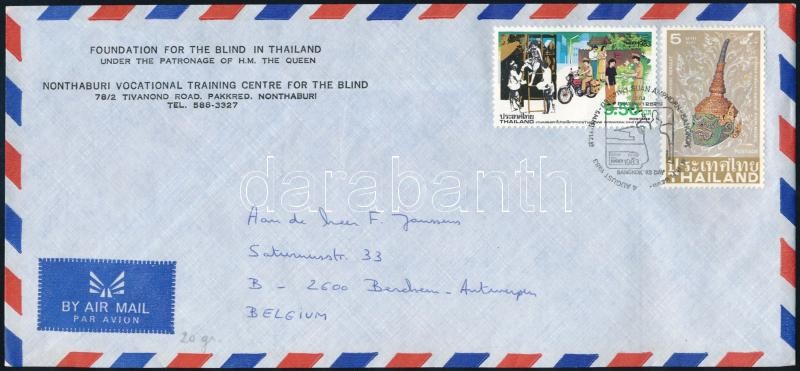 FOUNDATION FOR THE BLIND IN THAILAND
UNDER THE PATRONAGE OF H.M. THE QUEEN
NONTHABURI VOCATIONAL TRAINING CENTRE FOR THE BLIND
78/2 TIVANOND ROAD, PAKKRED, NONTHABURI
TEL. 586-3327
1983
9.50
ประเทศไทย
THAILAND
5
ประเทศไทย
THAILAND
1983
4 AUGUST 1983
darabanth
Aan de heer F. Janssens
Saturnusstr. 33
B - 2600 Berchem - Antwerpen
BELGIUM
BY AIR MAIL
PAR AVION
20 gr.